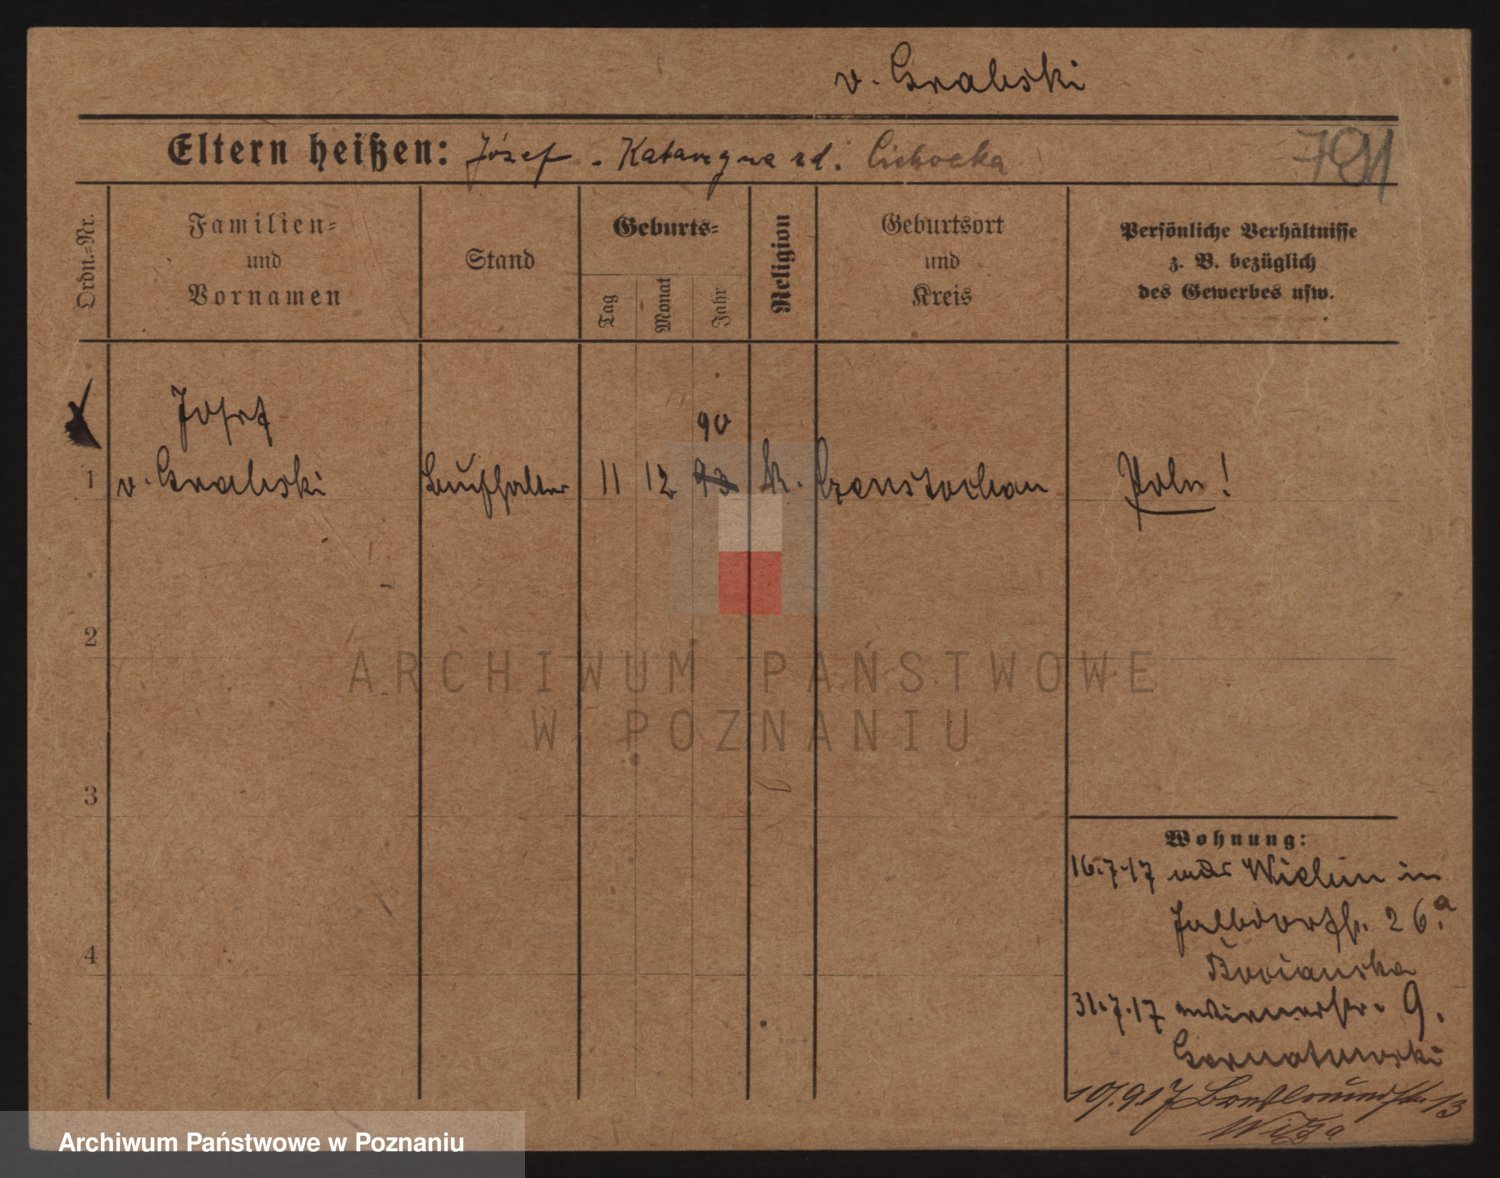 v. Grabski
Eltern heißen: Józef - Katarzyna rd. Cichocka
791
Ordn.-Nr.
Familien-
und
Vornamen
Stand
Geburts-
Tag
Monat
Jahr
Religion
Geburtsort
und
Kreis
Persönliche Verhältnisse
z. B. bezüglich
des Gewerbes usw.
Josef
90
1 v. Grabski Buchhalter 11 12 93 k. Czenstochau Pole!
2
ARCHIWUM PAŃSTWOWE
W POZNANIU
3
Wohnung:
16.7.17 aus Wielun in
26.a
4
Bocianska
31.7.17 9.
10/.9.17 13
Archiwum Państwowe w Poznaniu